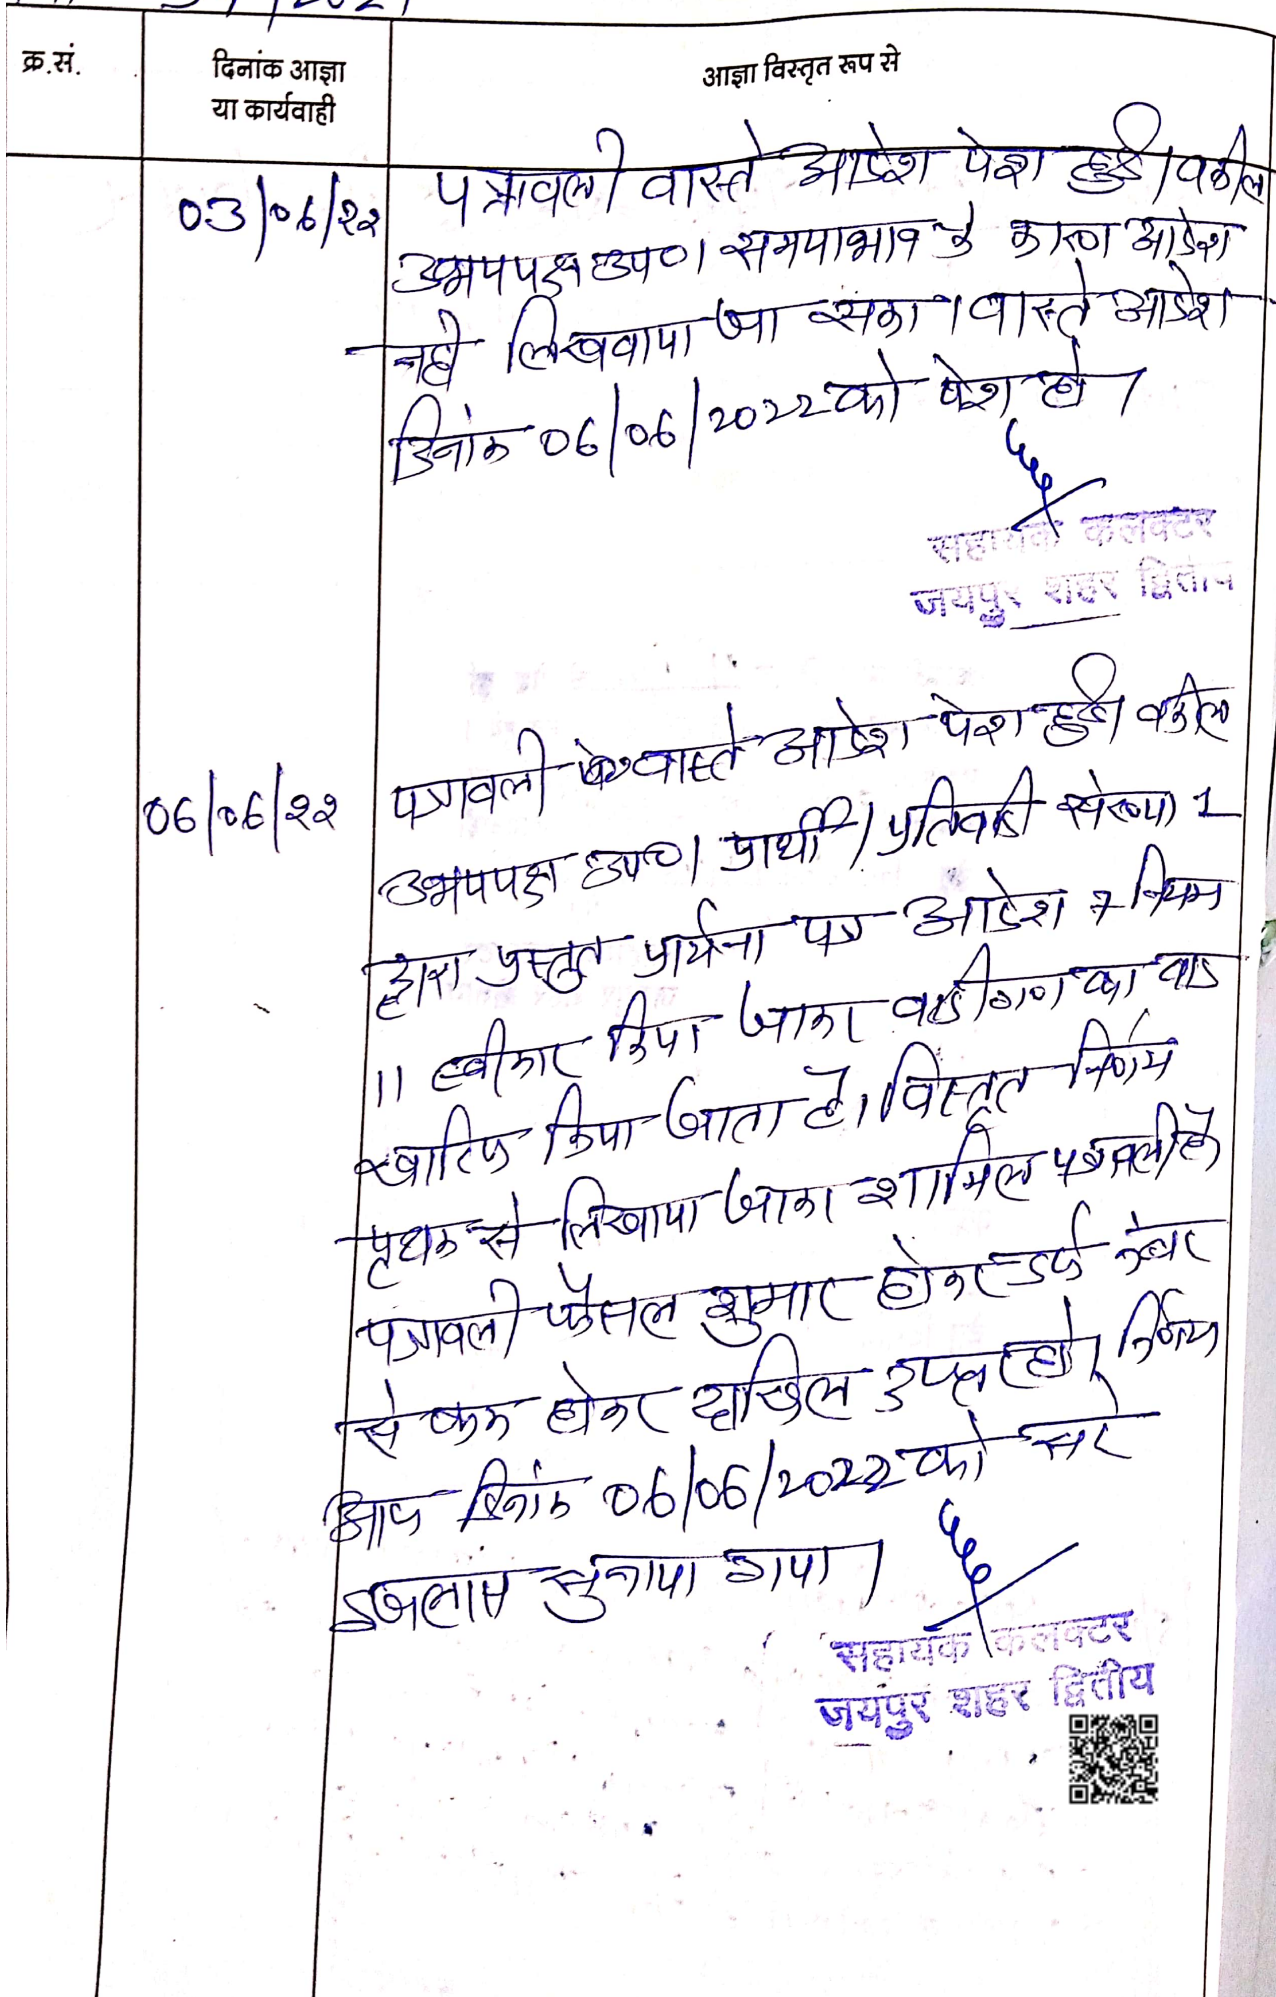 क्र.सं.
दिनांक आज्ञा
या कार्यवाही
आज्ञा विस्तृत रूप से
03/06/22
पत्रावली वास्ते आदेश पेश हुई। वकील
उभयपक्ष उप०। समयाभाव के कारण आदेश
नही लिखवाया जा सका। वास्ते आदेश
दिनांक 06/06/2022 को पेश हो।
सहायक कलक्टर
जयपुर शहर द्वितीय
06/06/22
पत्रावली वास्ते आदेश पेश हुई। वकील
उभयपक्ष उप०। प्रार्थी/प्रतिवादी संख्या 1
द्वारा प्रस्तुत प्रार्थना पत्र आदेश 7 नियम
11 स्वीकार किया जाकर वादीगण का वाद
खारिज किया जाता है। विस्तृत निर्णय
पृथक से लिखाया जाकर शामिल पत्रावली है
पत्रावली फैसल शुमार होकर दर्ज नंबर
से कम होकर दाखिल दफ्तर हो। निर्णय
आज दिनांक 06/06/2022 को सरे
इजलास सुनाया गया।
सहायक कलक्टर
जयपुर शहर द्वितीय